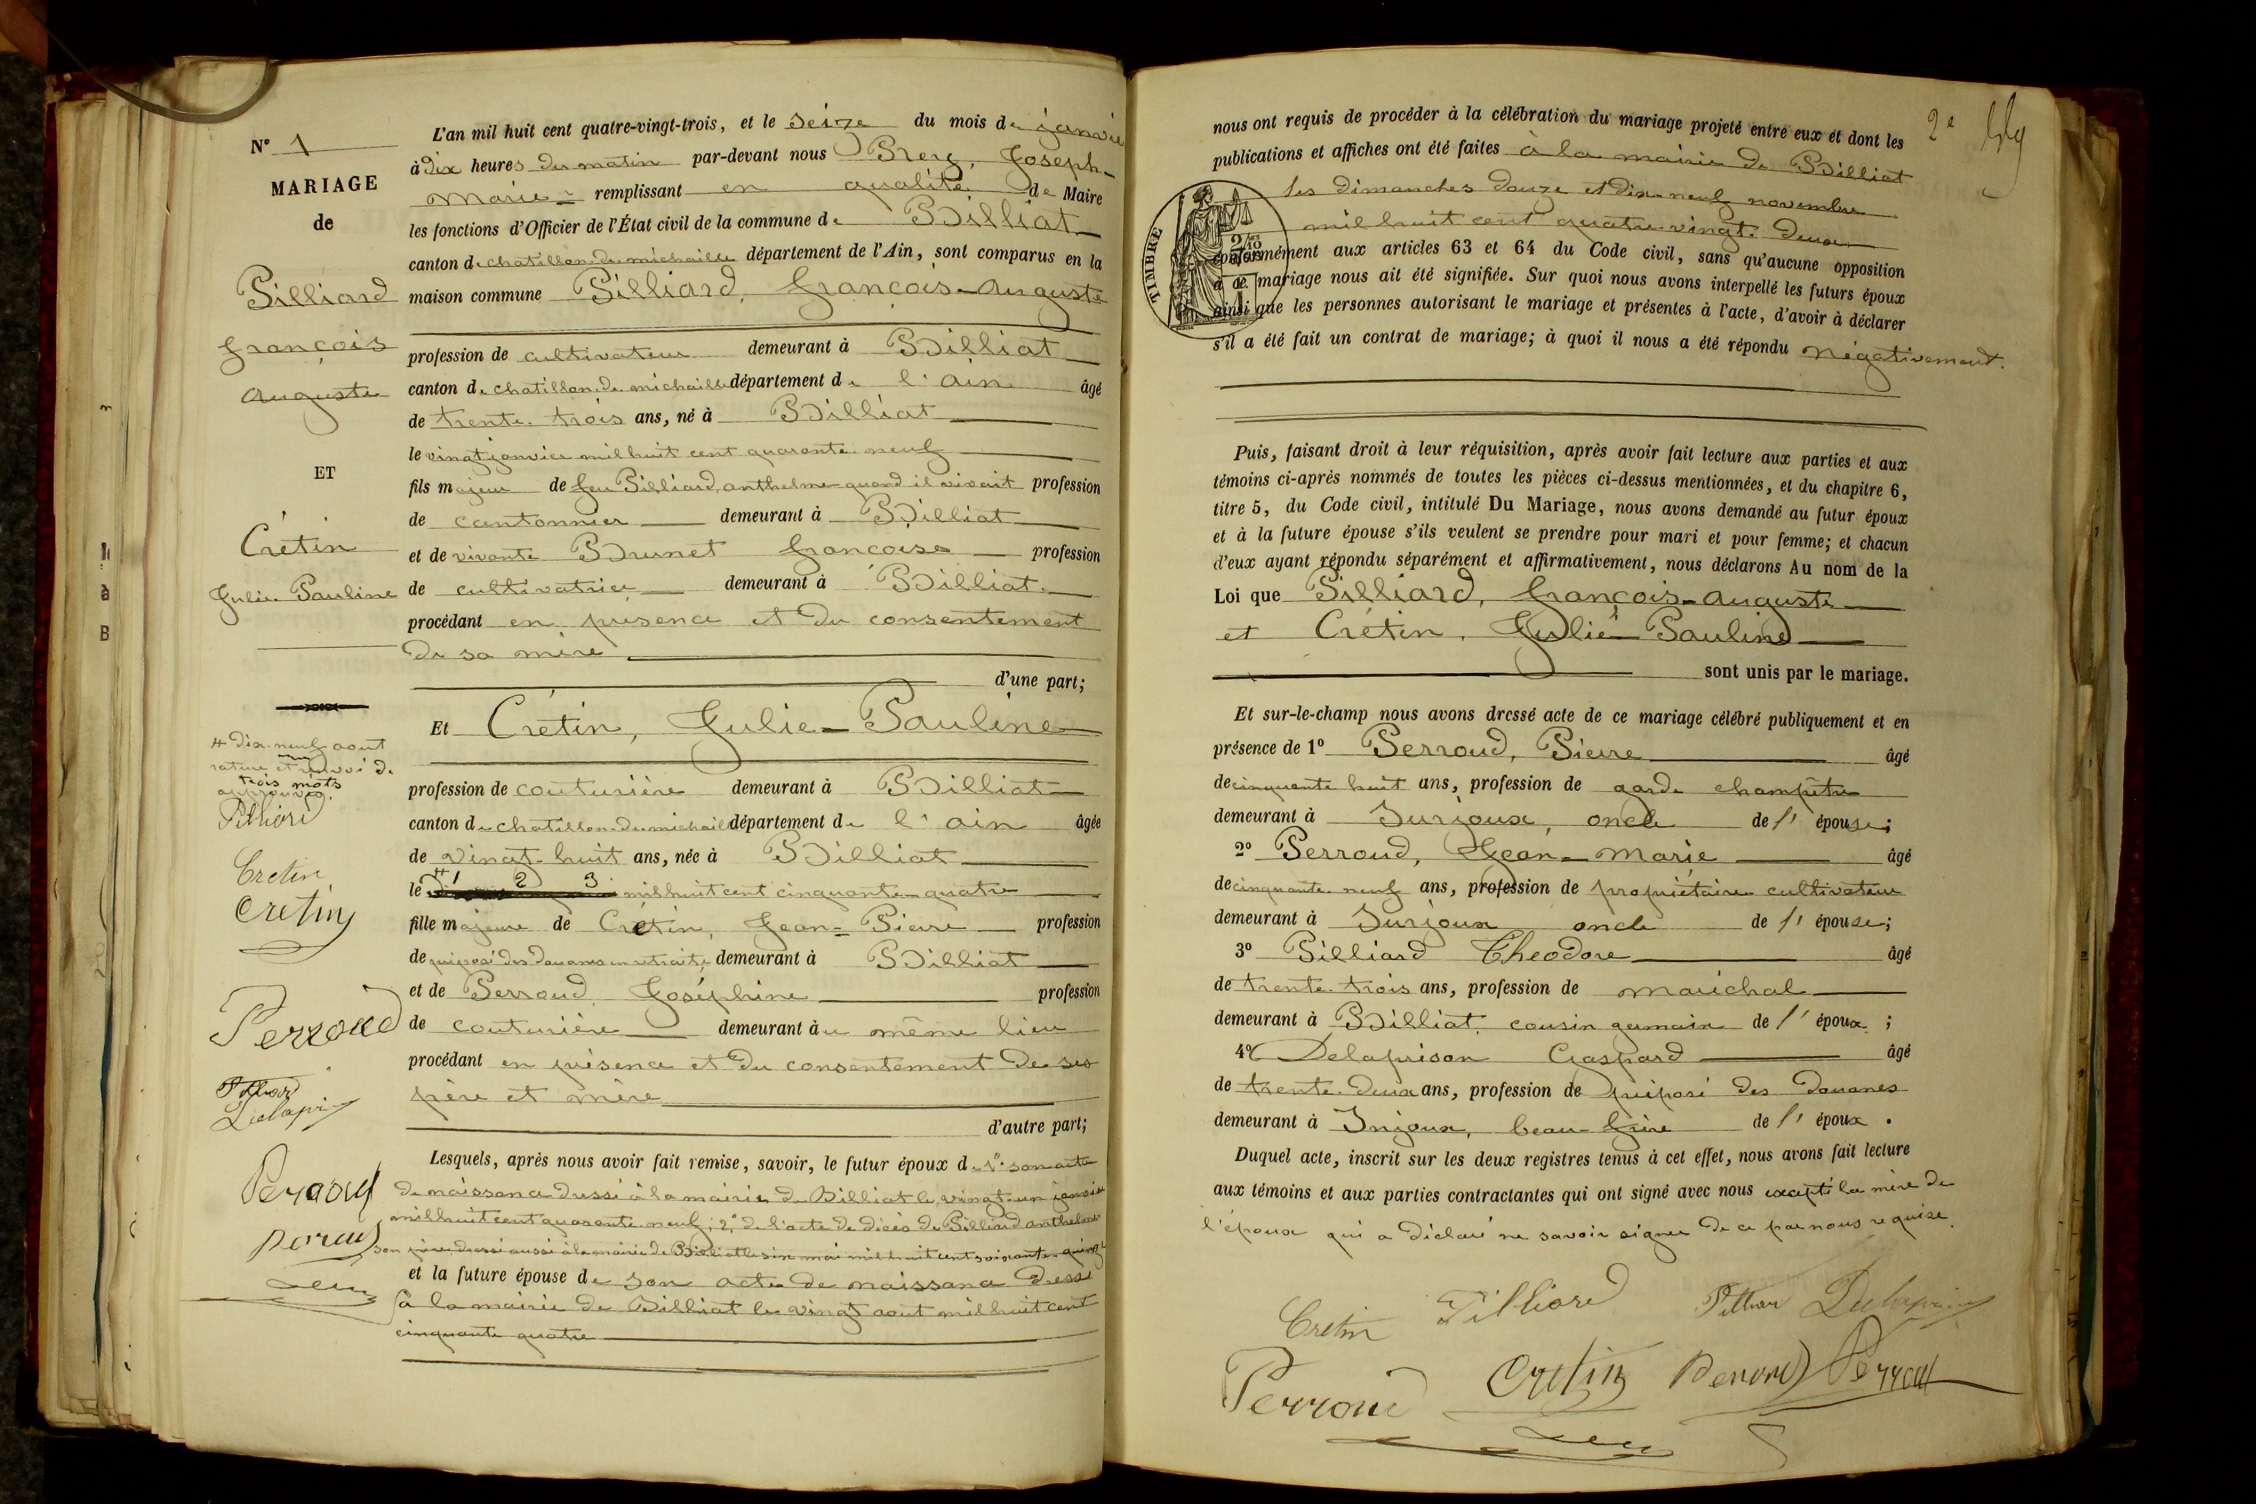 N° 1
MARIAGE
de
Pilliard
François
Auguste
ET
Crétin
Julie Pauline
# Dix-neuf aout
rature et renvoi de
trois mots
approuvés.
Pilliard
Cretin
Cretin
Perroud
Pilliard
Delapri
Perroud
L'an mil huit cent quatre-vingt-trois, et le seize du mois de janvier
à dix heures du matin par-devant nous Joseph-
Marie remplissant en qualité de Maire
les fonctions d'Officier de l'État civil de la commune de Billiat
canton de chatillon de michaille département de l'Ain, sont comparus en la
maison commune Pilliard, François-Auguste
profession de cultivateur demeurant à Billiat
canton de chatillon de michaille département de l'ain âgé
de trente trois ans, né à Billiat
le vingt janvier mil huit cent quarante neuf
fils majeur de feu Pilliard, anthelme quand il vivait profession
de cantonnier demeurant à Billiat
et de vivante Brunet françoise profession
de cultivatrice demeurant à Billiat
procédant en présence et du consentement
de sa mère
d'une part;
Et Crétin, Julie-Pauline
profession de couturière demeurant à Billiat
canton de chatillon de michaille département de l'ain âgée
de vingt-huit ans, née à Billiat
le # 1 2 3 mil huit cent cinquante-quatre
fille majeure de Crétin, Jean-Pierre profession
de préposé des douanes en retraite, demeurant à Billiat
et de Perroud, Joséphine profession
de couturière demeurant au même lieu
procédant en présence et du consentement de ses
père et mère
d'autre part;
Lesquels, après nous avoir fait remise, savoir, le futur époux de 1° son acte
de naissance dressé à la mairie de Billiat le vingt-un janvier
mil huit cent quarante neuf; 2° de l'acte de décès de Pilliard anthelme
son père dressé aussi à la mairie de Billiat le six mai mil huit cent soixante-quinze
et la future épouse de son acte de naissance dressé
à la mairie de Billiat le vingt aout mil huit cent
cinquante quatre
2e
nous ont requis de procéder à la célébration du mariage projeté entre eux et dont les
publications et affiches ont été faites à la mairie de Billiat
les dimanches douze et dix-neuf novembre
mil huit cent quatre-vingt-deux
TIMBRE
conformément aux articles 63 et 64 du Code civil, sans qu'aucune opposition
à ce mariage nous ait été signifiée. Sur quoi nous avons interpellé les futurs époux
ainsi que les personnes autorisant le mariage et présentes à l'acte, d'avoir à déclarer
s'il a été fait un contrat de mariage; à quoi il nous a été répondu négativement.
Puis, faisant droit à leur réquisition, après avoir fait lecture aux parties et aux
témoins ci-après nommés de toutes les pièces ci-dessus mentionnées, et du chapitre 6,
titre 5, du Code civil, intitulé Du Mariage, nous avons demandé au futur époux
et à la future épouse s'ils veulent se prendre pour mari et pour femme; et chacun
d'eux ayant répondu séparément et affirmativement, nous déclarons Au nom de la
Loi que Pilliard, François-Auguste
et Crétin, Julie Pauline
sont unis par le mariage.
Et sur-le-champ nous avons dressé acte de ce mariage célébré publiquement et en
présence de 1° Perroud, Pierre âgé
de cinquante huit ans, profession de garde champêtre
demeurant à Surjoux, oncle de l'épouse;
2° Perroud, Jean-Marie âgé
de cinquante neuf ans, profession de propriétaire cultivateur
demeurant à Surjoux oncle de l'épouse;
3° Pilliard Théodore âgé
de trente-trois ans, profession de maréchal
demeurant à Billiat, cousin germain de l'époux;
4° Delaprison Gaspard âgé
de trente-deux ans, profession de préposé des douanes
demeurant à Injoux, beau-frère de l'époux.
Duquel acte, inscrit sur les deux registres tenus à cet effet, nous avons fait lecture
aux témoins et aux parties contractantes qui ont signé avec nous excepté la mère de
l'époux qui a déclaré ne savoir signer de ce par nous requise.
Cretin Pilliard Pilliard Delaprison
Perroud Cretin Perroud Perroud